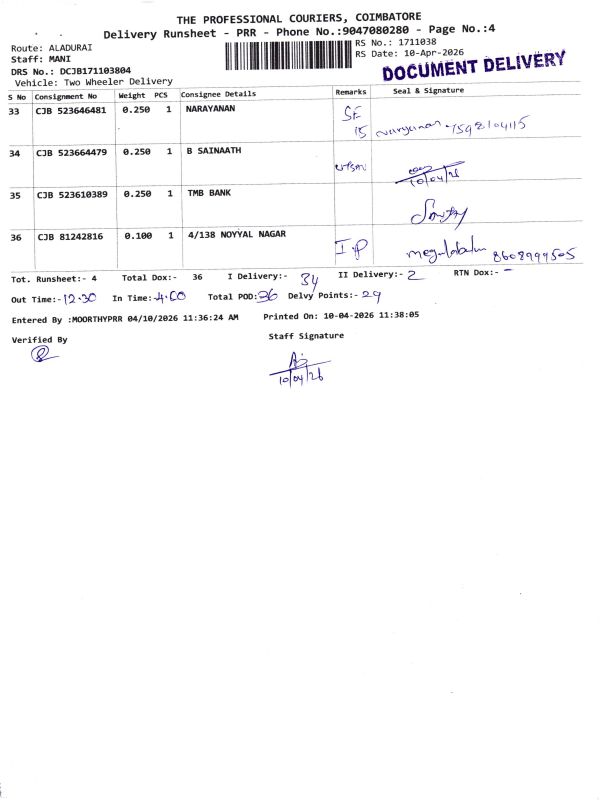 THE PROFESSIONAL COURIERS, COIMBATORE
Delivery Runsheet - PRR - Phone No.:9047080280 - Page No.:4
Route: ALADURAI
RS No.: 1711038
Staff: MANI
RS Date: 10-Apr-2026
DOCUMENT DELIVERY
DRS No.: DCJB171103804
Vehicle: Two Wheeler Delivery
S No Consignment No Weight PCS Consignee Details Remarks Seal & Signature
33 CJB 523646481 0.250 1 NARAYANAN
15 Narayanan - 7598104115
34 CJB 523664479 0.250 1 B SAINAATH
10/04/26
35 CJB 523610389 0.250 1 TMB BANK
36 CJB 81242816 0.100 1 4/138 NOYYAL NAGAR
8608999505
Tot. Runsheet:- 4 Total Dox:- 36 I Delivery:- 34 II Delivery:- 2 RTN Dox:- -
Out Time:- 12.30 In Time:- 4.00 Total POD: 36 Delvy Points:- 29
Entered By :MOORTHYPRR 04/10/2026 11:36:24 AM Printed On: 10-04-2026 11:38:05
Verified By
Staff Signature
10/04/26